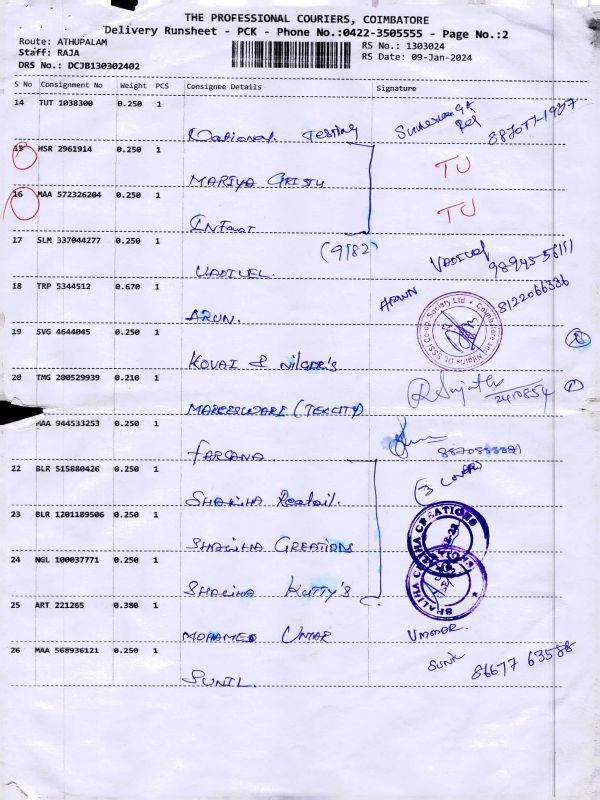 THE PROFESSIONAL COURIERS, COIMBATORE
Delivery Runsheet - PCK - Phone No.:0422-3505555 - Page No.:2
Route: ATHUPALAM
Staff: RAJA
DRS No.: DCJB130302402
RS No.: 1303024
RS Date: 09-Jan-2024
S No Consignment No Weight PCS Consignee Details Signature
14 TUT 1038300 0.250 1
National Testing
15 HSR 2961914 0.250 1
MARIYA CRISTU TU
16 MAA 572326204 0.250 1
INFANT TU
(9182)
17 SLM 337044277 0.250 1
VADIVEL. VADIVEL
18 TRP 5344512 0.670 1
ARUN. ARUN 8122066336
19 SVG 4644045 0.250 1
KOVAI & NILGRE'S
20 TMG 200529939 0.210 1
MAREESWARI (TEXCITY) 2410854
MAA 944533253 0.250 1
FARSANA
22 BLR 515880426 0.250 1
SHALIHA Reatail. (3 COVER)
23 BLR 1201189506 0.250 1
SHALIHA CREATIONS SHALIHA CREATIONS
24 NGL 100037771 0.250 1
SHALIHA KUTTY'S SHALIHA CREATIONS
25 ART 221265 0.380 1
MOHAMED UMAR Ummar.
26 MAA 568936121 0.250 1
SUNIL. SUNIL 86677 63588